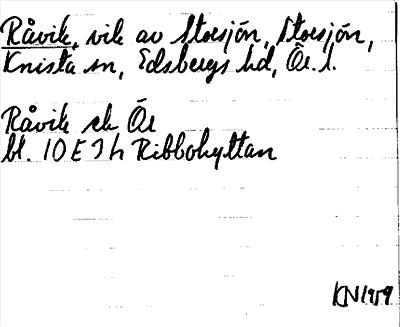 Råvik, vik av Storsjön, Storsjön,
Knista sn, Edsbergs hd, Ör. l.
Råvik ek Ör
bl. 10 E 3 h Ribbohyttan
KN1959